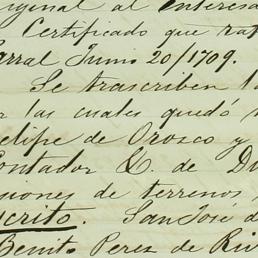 riginal al interesa
Certificado que rat
Parral Junio 20/1709.
Se trascriben la
r las cuales quedó
elipe de Orosco y
Contador &. de Du
siones de terrenos
scrito. San José d
Benito Perez de Riv